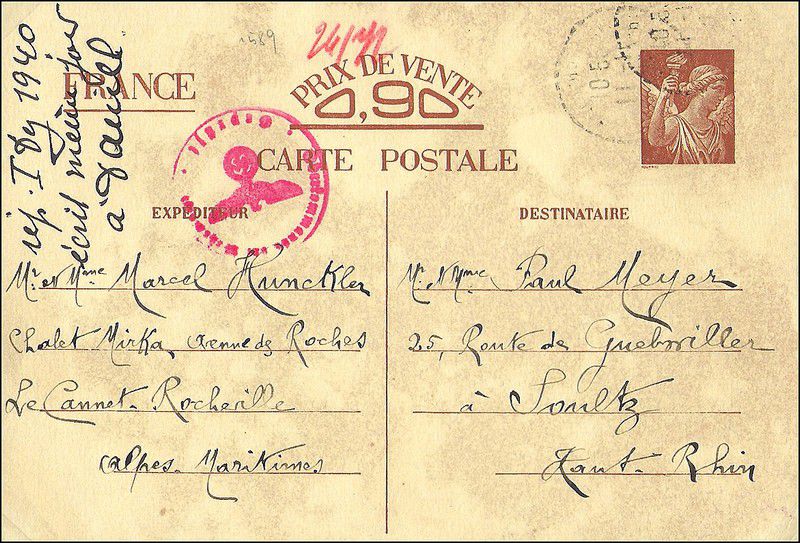 1589
24/
FRANCE
PRIX DE VENTE
0,90
CARTE POSTALE
rép. I Dy 1940
écrit même jour
à
EXPÉDITEUR
Mr et Mme Marcel Hunckler
Chalet Mirka, avenue des Roches
Le Cannet-Rocheville
Alpes-Maritimes
DESTINATAIRE
Mr. et Mme Paul Meyer
25, Route de Guebwiller
à Soultz
Haut-Rhin